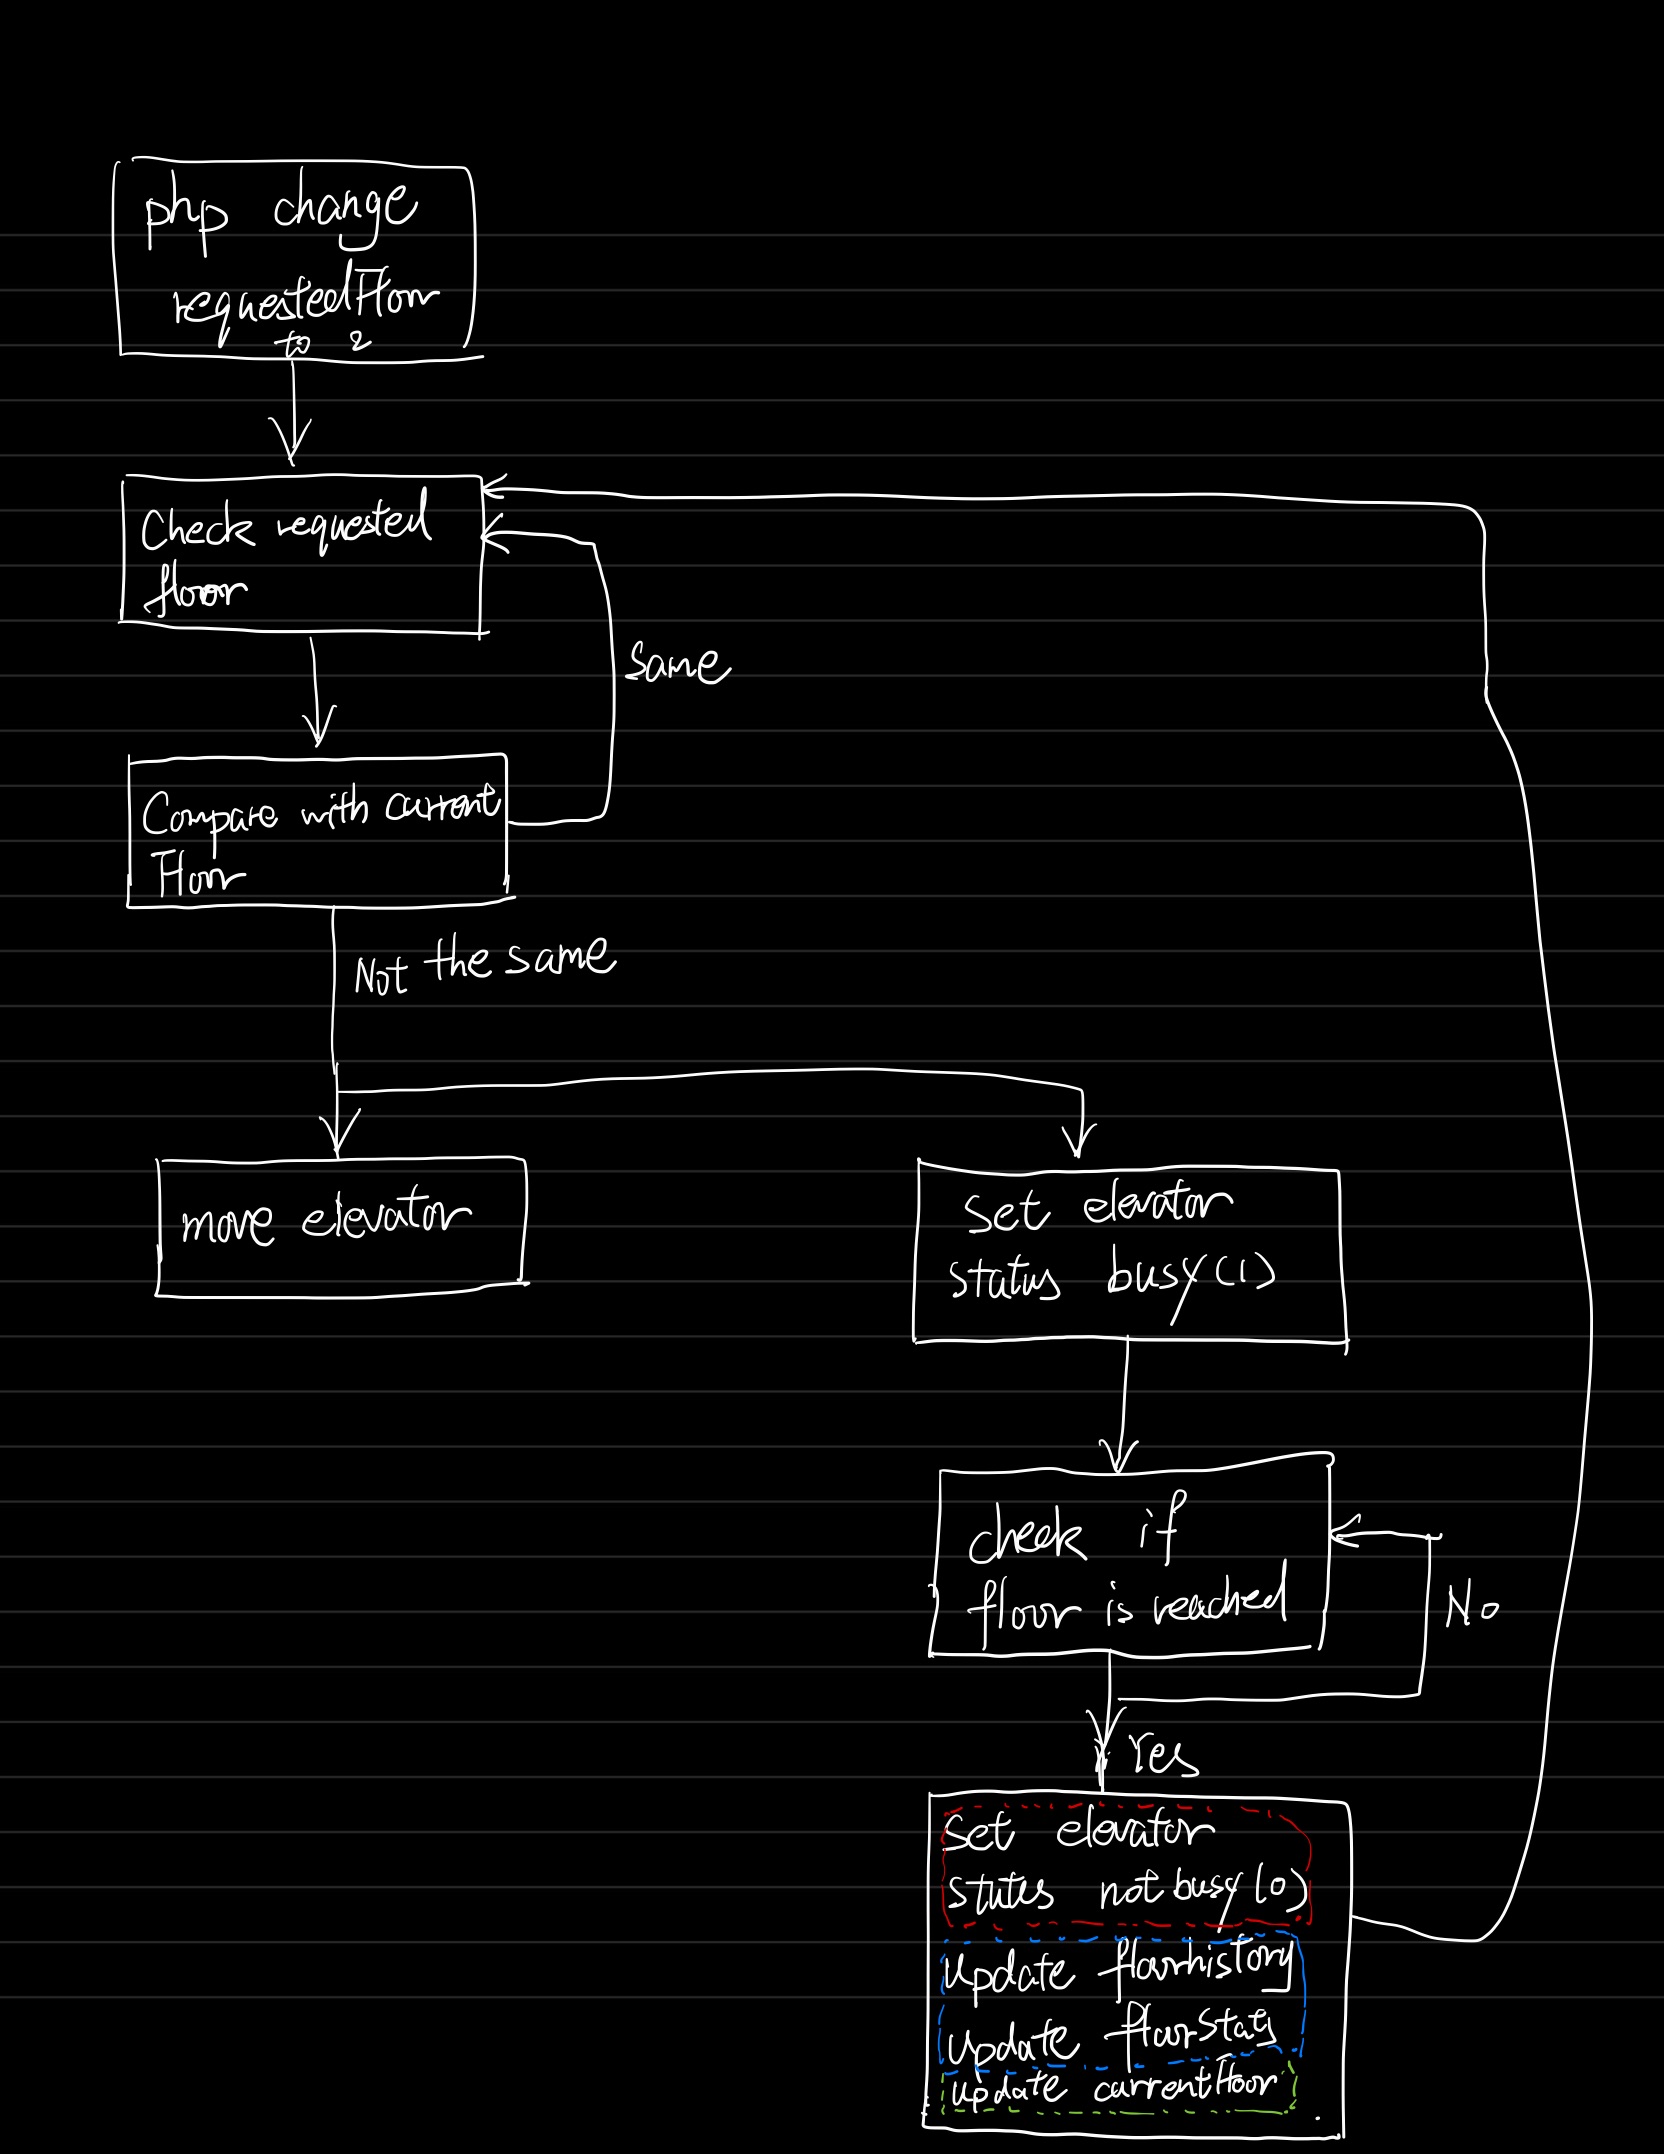 php change
requestedFloor
to 2
Check requested
floor
Same
Compare with current
Floor
Not the same
move elevator
Set elevator
status busy(1)
check if
floor is reached
No
Yes
Set elevator
status not busy(0)
Update floorhistory
Update floorStats
update currentFloor